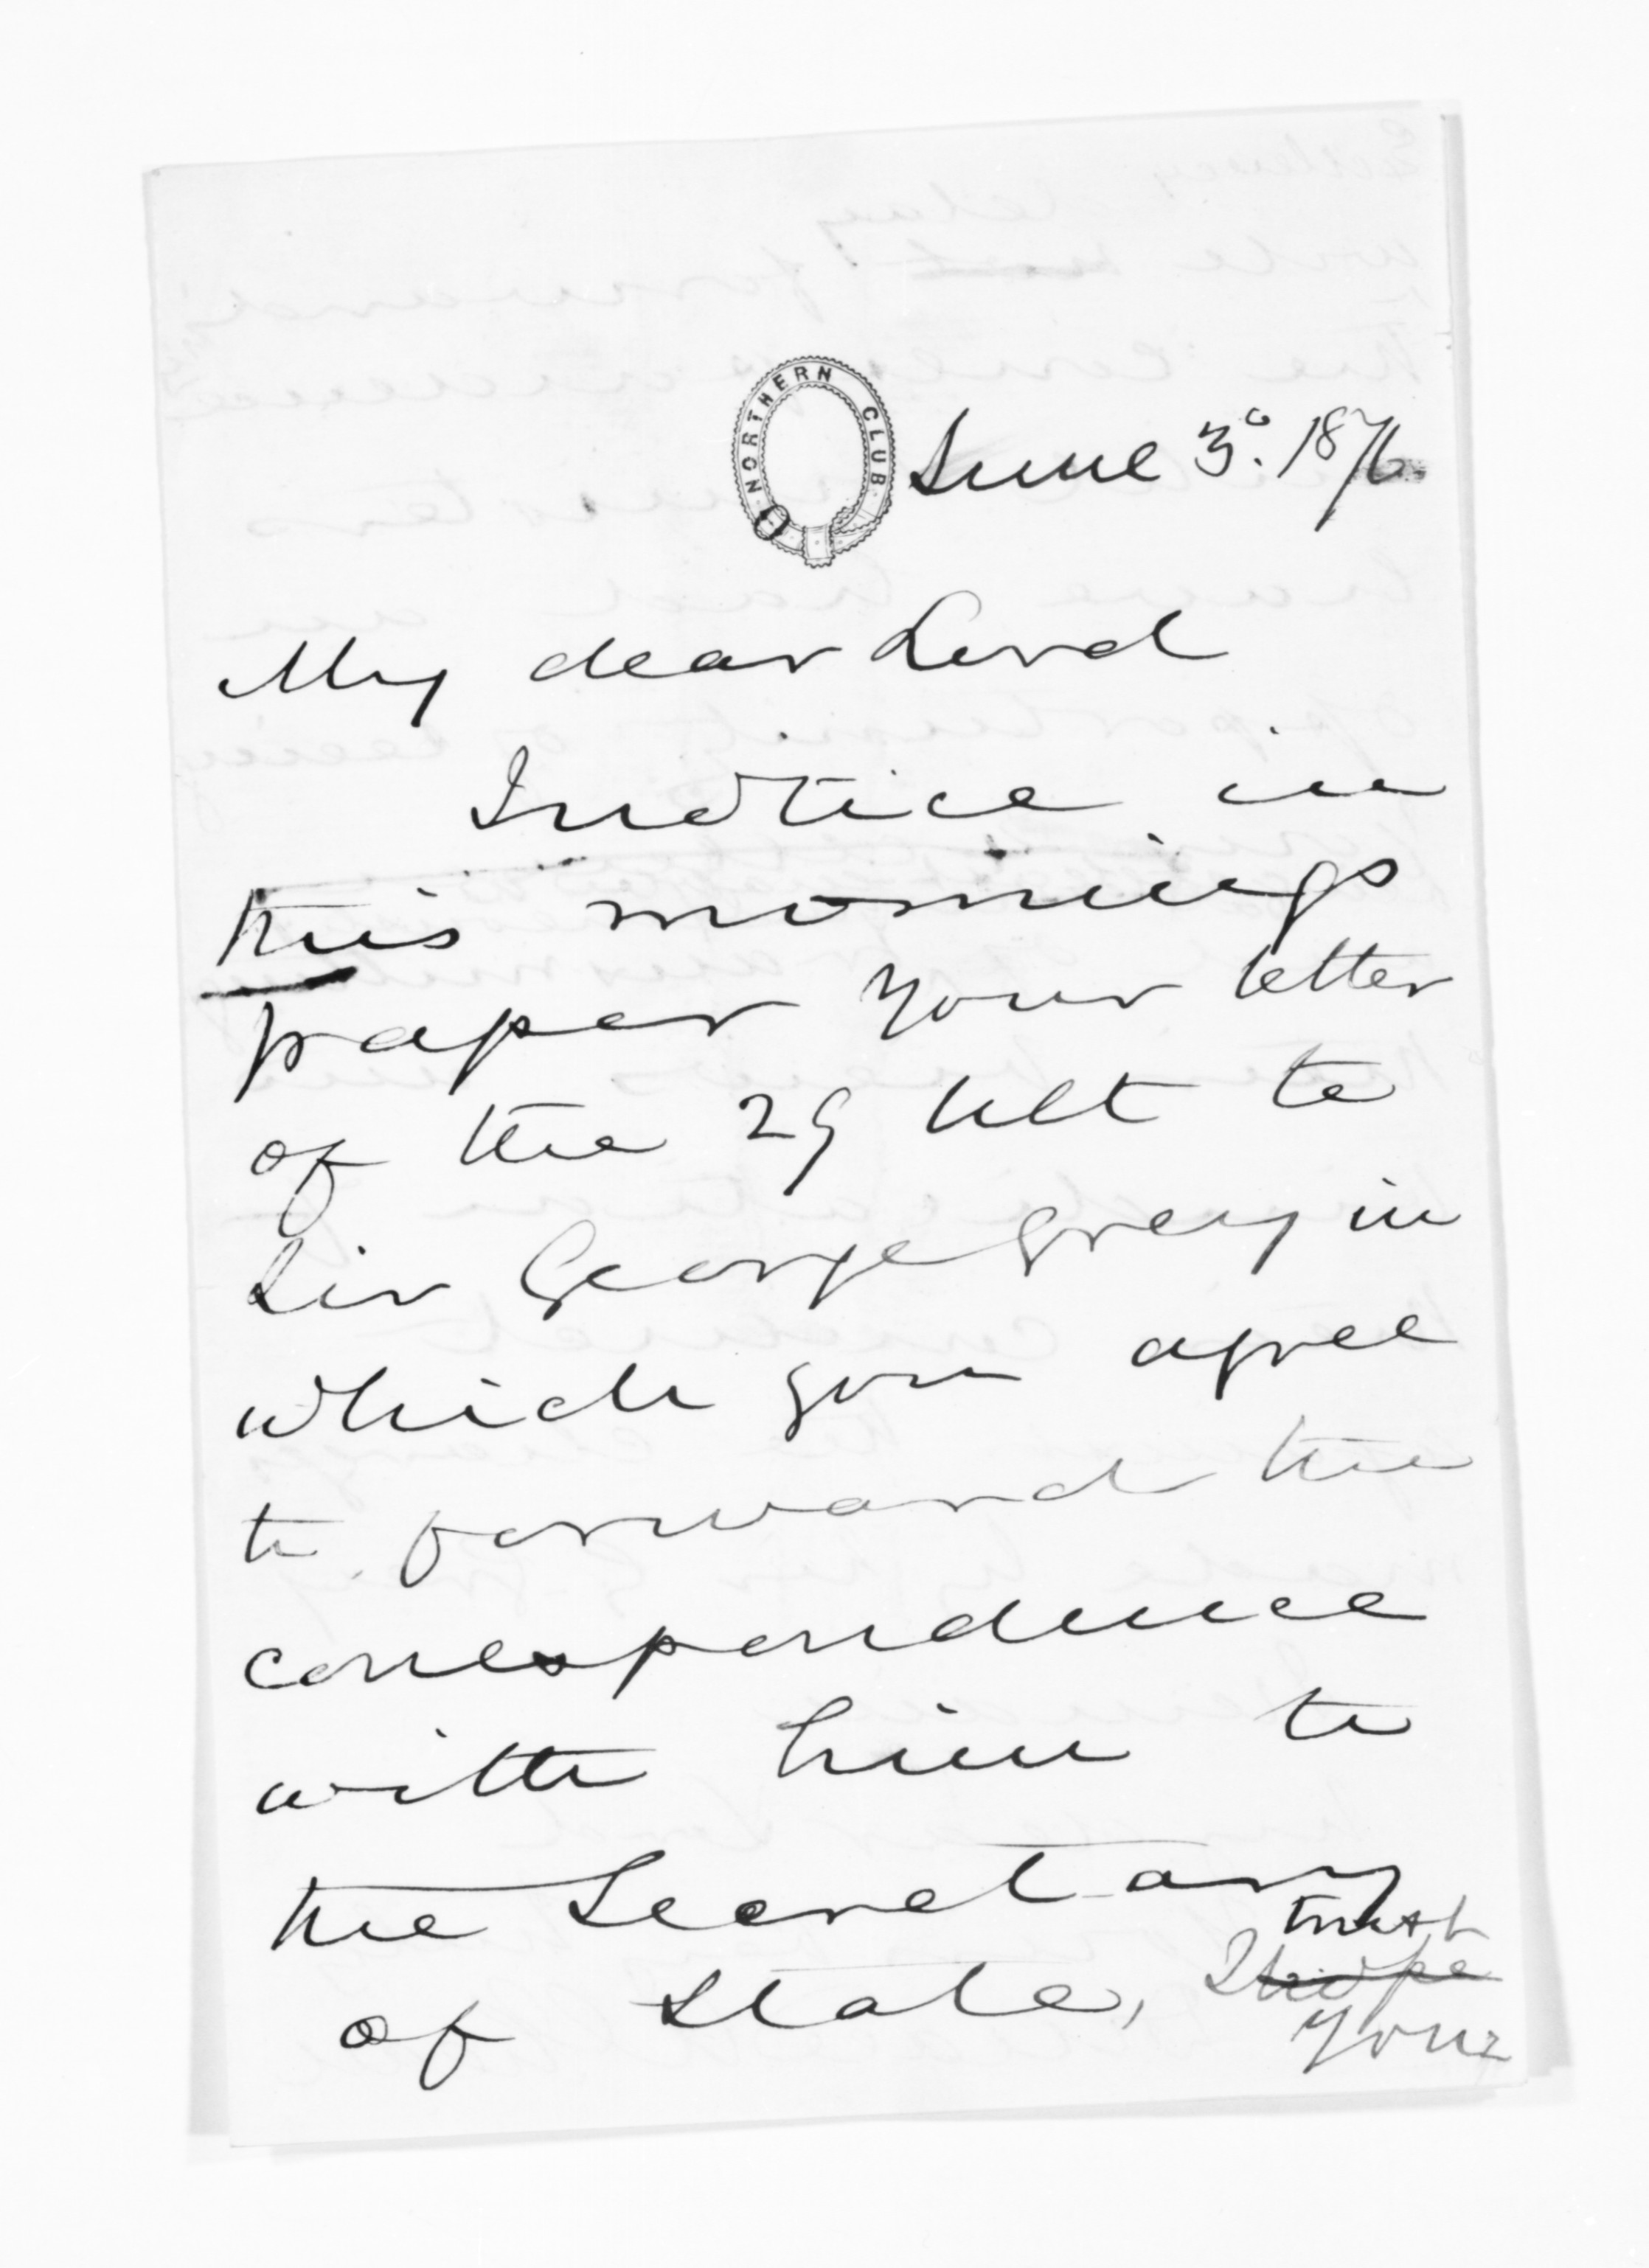 NORTHERN CLUB
June 3º. 1876.
My dear Lord
I notice in
this mornings
paper your letter
of the 29 Ult to
Sir George Grey in
which you agree
to forward the
correspondence
with him to
the Secretary
trust
of State, I hope
your